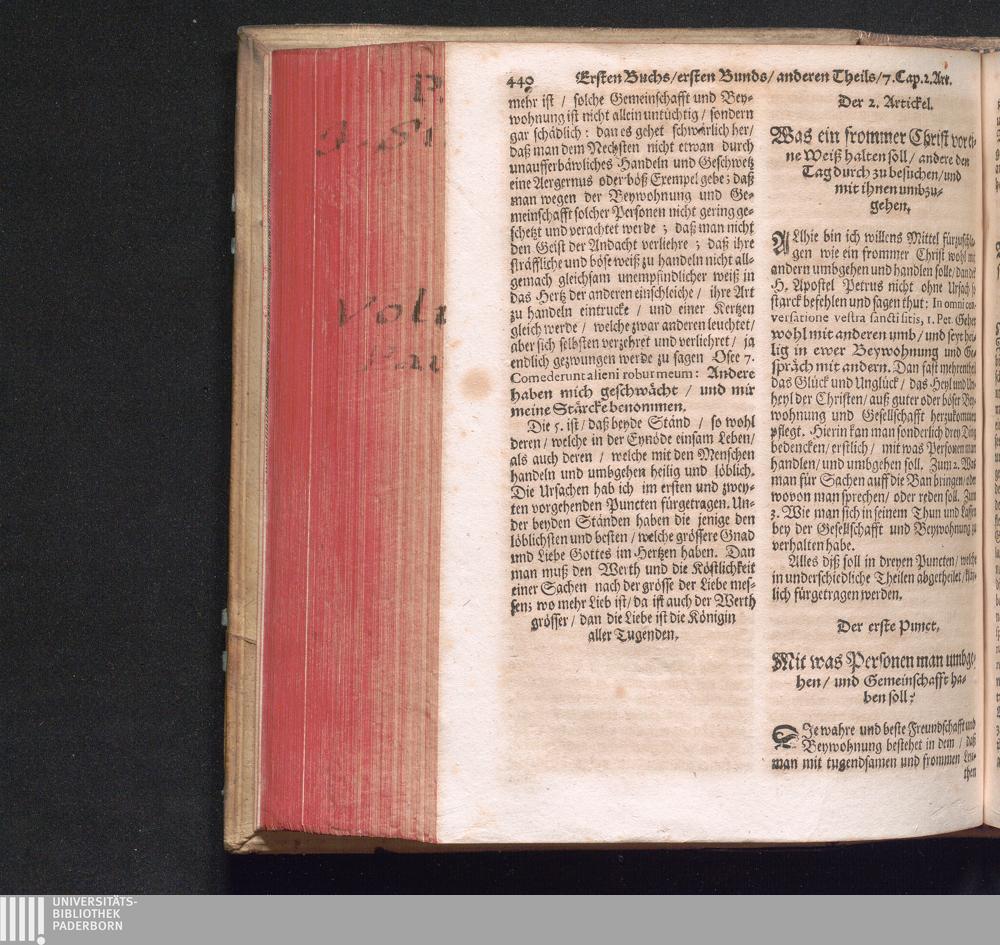 440 Ersten Buchs/ersten Bunds/anderen Theils/7.Cap.2.Art.
mehr ist / solche Gemeinschafft und Bey-
wohnung ist nicht allein untüchtig / sondern
gar schädlich: dan es gehet schwärlich her/
daß man dem Nechsten nicht etwan durch
unaufferbäwliches Handeln und Geschwetz
eine Aergernus oder böß Exempel gebe; daß
man wegen der Beywohnung und Ge-
meinschafft solcher Personen nicht gering ge-
schetzt und verachtet werde ; daß man nicht
den Geist der Andacht verliehre ; daß ihre
sträffliche und böse weiß zu handeln nicht all-
gemach gleichsam unempfindlicher weiß in
das Hertz der anderen einschleiche / ihre Art
zu handeln eintrucke / und einer Kertzen
gleich werde / welche zwar anderen leuchtet/
aber sich selbsten verzehret und verliehret/ ja
endlich gezwungen werde zu sagen Osee 7.
Comederunt alieni robur meum: Andere
haben mich geschwächt / und mir
meine Stärcke benommen.
Die 5. ist/ daß beyde Ständ / so wohl
deren/ welche in der Eynöde einsam Leben/
als auch deren / welche mit den Menschen
handeln und umbgehen heilig und löblich.
Die Ursachen hab ich im ersten und zwey-
ten vorgehenden Puncten fürgetragen. Un-
der beyden Ständen haben die jenige den
löblichsten und besten / welche grössere Gnad
und Liebe Gottes im Hertzen haben. Dan
man muß den Werth und die Köstlichkeit
einer Sachen nach der grösse der Liebe mes-
sen; wo mehr Lieb ist/da ist auch der Werth
grösser / dan die Liebe ist die Königin
aller Tugenden.
Der 2. Artickel.
Was ein frommer Christ vor ei-
ne Weiß halten soll / andere den
Tag durch zu besuchen/und
mit ihnen umbzu-
gehen.
ALlhie bin ich willens Mittel
gen wie ein frommer Christ wohl mit
andern umbgehen und handlen solle/
H. Apostel Petrus nicht ohne Ursach
starck befehlen und sagen thut: In omni con-
versatione vestra sancti sitis, 1. Pet. Gehet
wohl mit anderen umb/ und seyt hei-
lig in ewer Beywohnung und Ge-
spräch mit andern. Dan fast mehrentheil
das Glück und Unglück / das Heyl und Un-
heyl der Christen/ auß guter oder böser Bey-
wohnung und Gesellschafft herzukommen
pflegt. Hierin kan man sonderlich drey Ding
bedencken/ erstlich / mit was Personen man
handlen/ und umbgehen soll. Zum 2. Was
man für Sachen auff die Ban bringen/ oder
wovon man sprechen/ oder reden soll. Zum
3. Wie man sich in seinem Thun und Lassen
bey der Gesellschafft und Beywohnung zu
verhalten habe.
Alles diß soll in dreyen Puncten/ welche
in underschiedliche Theilen abgetheilet/ klär-
lich fürgetragen werden.
Der erste Punct.
Mit was Personen man umbge-
hen / und Gemeinschafft ha-
ben soll?
DIe wahre und beste Freundschafft und
Beywohnung bestehet in dem / daß
man mit tugendsamen und frommen Leu-
then
UNIVERSITÄTS-
BIBLIOTHEK
PADERBORN